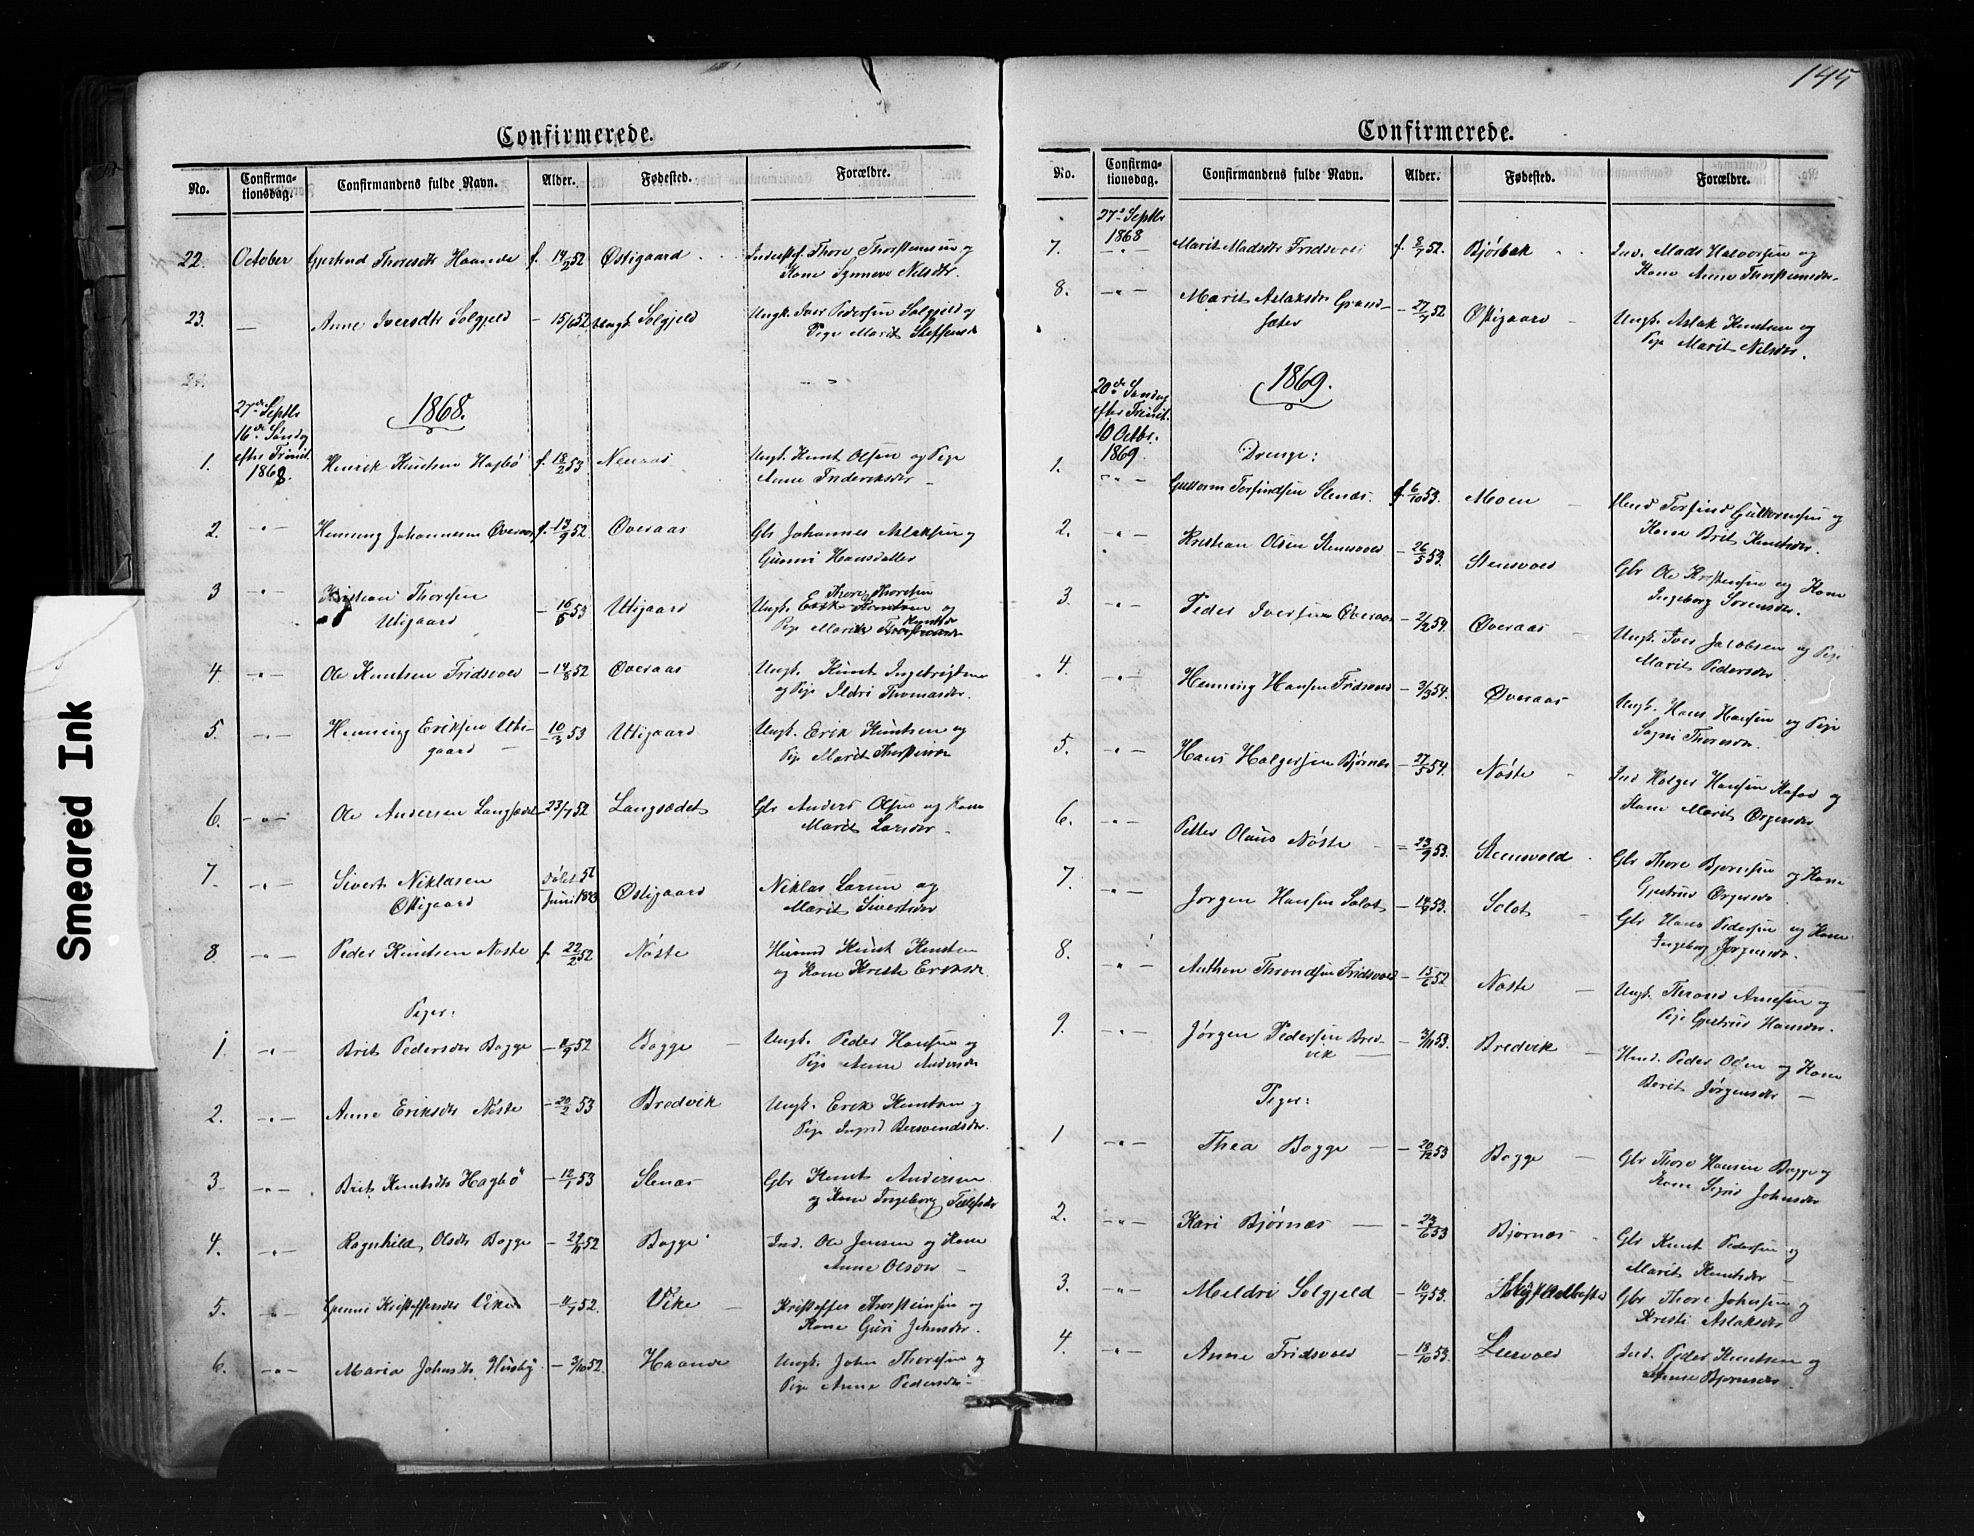 145
Smeared Ink
Confirmerede.
No. Confirma-tionsdag. Confirmandens fulde Navn. Alder. Fødested. Forældre.
22. October Gjertrud Thoresdtr Haande f. 14/2 52 Østigaard Inderstf. Thore Thorsteinsen og
Kone Synneve Nilsdtr.
23. — Anne Iversdtr Solgjeld – 15/6 52 Solgjeld Ungk. Iver Pedersen Solgjeld og
Pige Marit Steffensd
24.
27de Septbr
16de Søndag
efter Trinit.
1868.
1868.
1. Henrik Knutsen Hagbø f. 18/2 53 Neuraas Ungk. Knut Olsen og Pige
Anne Frideriksdtr –
2. –"– Henning Johannesen Øveraas f. 13/9 52 Øveraas Gbr Johannes Aslaksen og
Gunni Hansdatter
3 –"– Kristian Thoresen
Utigaard – 16/6 53 Utigaard Thore Thoresen
Ungk. Erik Knutsen og
Pige Marit Knutsdr
4 –"– Ole Knutsen Fridsvold – 14/8 52 Øveraas Ungk. Knut Ingebrigtsen
og Pige Ildri Thomasdtr.
5. –"– Henning Eriksen Uti-
gaard – 10/3 53 Utigaard Ungk. Erik Knutsen og
Pige Marit Thorsteinsdr
6. –"– Ole Andersen Langsædet – 23/7 52 Langsædet Gbr Anders Olsen og Kone
Marit Larsdtr –
7. –"– Sivert Niklasen
Østigaard Juni 1853 Østigaard Niklas Larsen og
Marit Sivertsdtr
8 –"– Peder Knutsen Nøste f. 22/2 52 Nøste Husmd Knut Knutsen
og Kone Kristi Eriksdr
Piger:
1 –"– Brit Pedersdtr Bogge – 11/9 52 Bogge Ungk. Peder Hansen og
Pige Anne Andersdr
2. –"– Anne Eriksdtr Nøste – 20/2 53 Bredvik Ungk. Erik Knutsen og
Pige Ingrid Bersvendsdtr.
3 –"– Brit Knutsdtr Hagbø – 12/7 53 Slenæs Gbr Knut Andersen
og Kone Ingeborg
4. –"– Ragnhild Olsdtr Bogge – 29/11 52 Bogge Ind. Ole Jensen og Kone
Anne Olsdr –
5. –"– Gunni Kristoffersdtr Vike – 11/7 52. Vike – Kristoffer Thorsteinsen og
Kone Guri Johnsdtr.
6. –"– Maria Johnsdtr Husby – 3/10 52. Haande Ungk. John Thoresen og
Pige Anne Pedersdtr.
Confirmerede.
No. Confirma-tionsdag. Confirmandens fulde Navn. Alder. Fødested. Forældre.
27de Septbr
1868
7. –"– Marit Madsdtr Fridsvol f. 8/7 52. Bjørbæk Ind. Mads Halvorsen og
Kone Anne Thorsteinsdtr
8. –"– Marit Aslaksdtr Grand-
sæter – 27/7 52 Østigaard – Ungk. Aslak Knutsen og
Pige Marit Nilsdtr.
20de Søndag
efter Trinit.
10 Octbr.
1869.
1869.
Drenge:
1. –"– Guttorm Torfindsen Slenæs. f. 6/10 53. Moen – Hmd Torfind Guttormsen og
Kone Brit Knutsdtr.
2. Kristian Olsen Stensvold – 26/5 53. Stensvold Gbr Ole Kristensen og Kone
Ingeborg Sørensdr.
3. –"– Peder Iversen Øveraas – 2/2 54. Øveraas – Ungk. Iver Jacobsen og Pige
Marit Pedersdtr
4. –"– Henning Hansen Fridsvold – 3/3 54. Øveraas Ungk. Hans Hansen og Pige
Sogni Thoresdtr.
5. –"– Hans Holgersen Bjørnæs – 27/5 54. Nøste Ind Holger Hansen Hafod og
Kone Marit Ørgensdtr
6. –"– Petter Olaus Nøste – 23/9 53. Steensvold Gbr Thore Bjørnsen og Kone
Gjertrud Ørgensdr
7. –"– Jørgen Hansen Solot – 19/9 53. Solot – Gbr Hans Pedersen og Kone
Ingeborg Jørgensdr.
8. –"– Anthon Throndsen Fridsvold – 15/6 52 Nøste – Ungk. Thrond Arnesen og
Pige Gjertrud Hansdr.
9. –"– Jørgen Pedersen Bred-
vik – 7/11 53. Bredvik – Hmd. Peder Olsen og Kone
Berit Jørgensdtr –
Piger:
1 –"– Thea Bogge – 20/12 53 Bogge – Gbr Thore Hansen Bogge og
Kone Sigrid Johnsdtr
2. –"– Kari Bjørnæs – – 23/6 53 Bjørnæs – Gbr Knut Pedersen og
Marit Knutsdtr –
3. –"– Meldri Solgjeld – 10/9 53. Gbr Thore Johnsen og
Kristi Aslaksdtr
4. –"– Anne Fridsvold – 18/10 53. Ind. Peder Knutsen og
Bjørnsdtr.